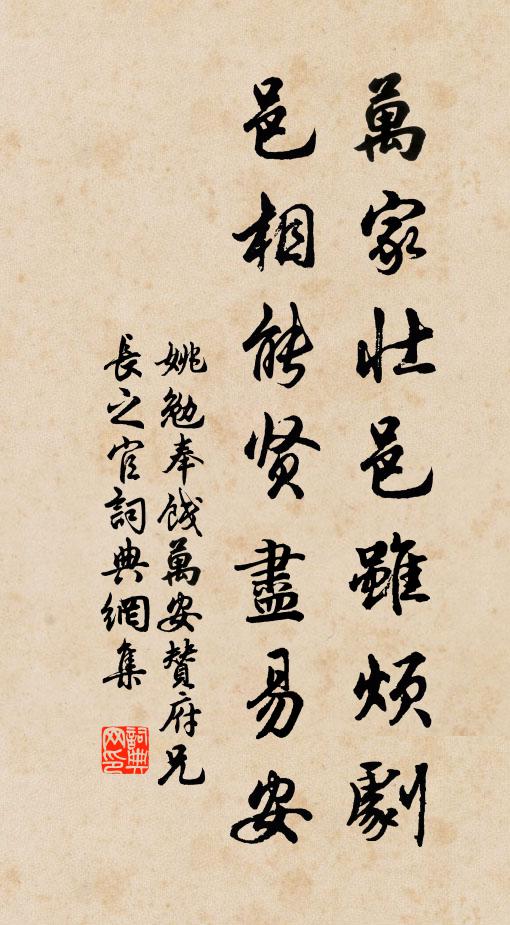 萬家壯邑雖煩劇
邑相能贤盡易安
姚勉奉餞萬安贊府兄
長之官詞典網集
詞典网印